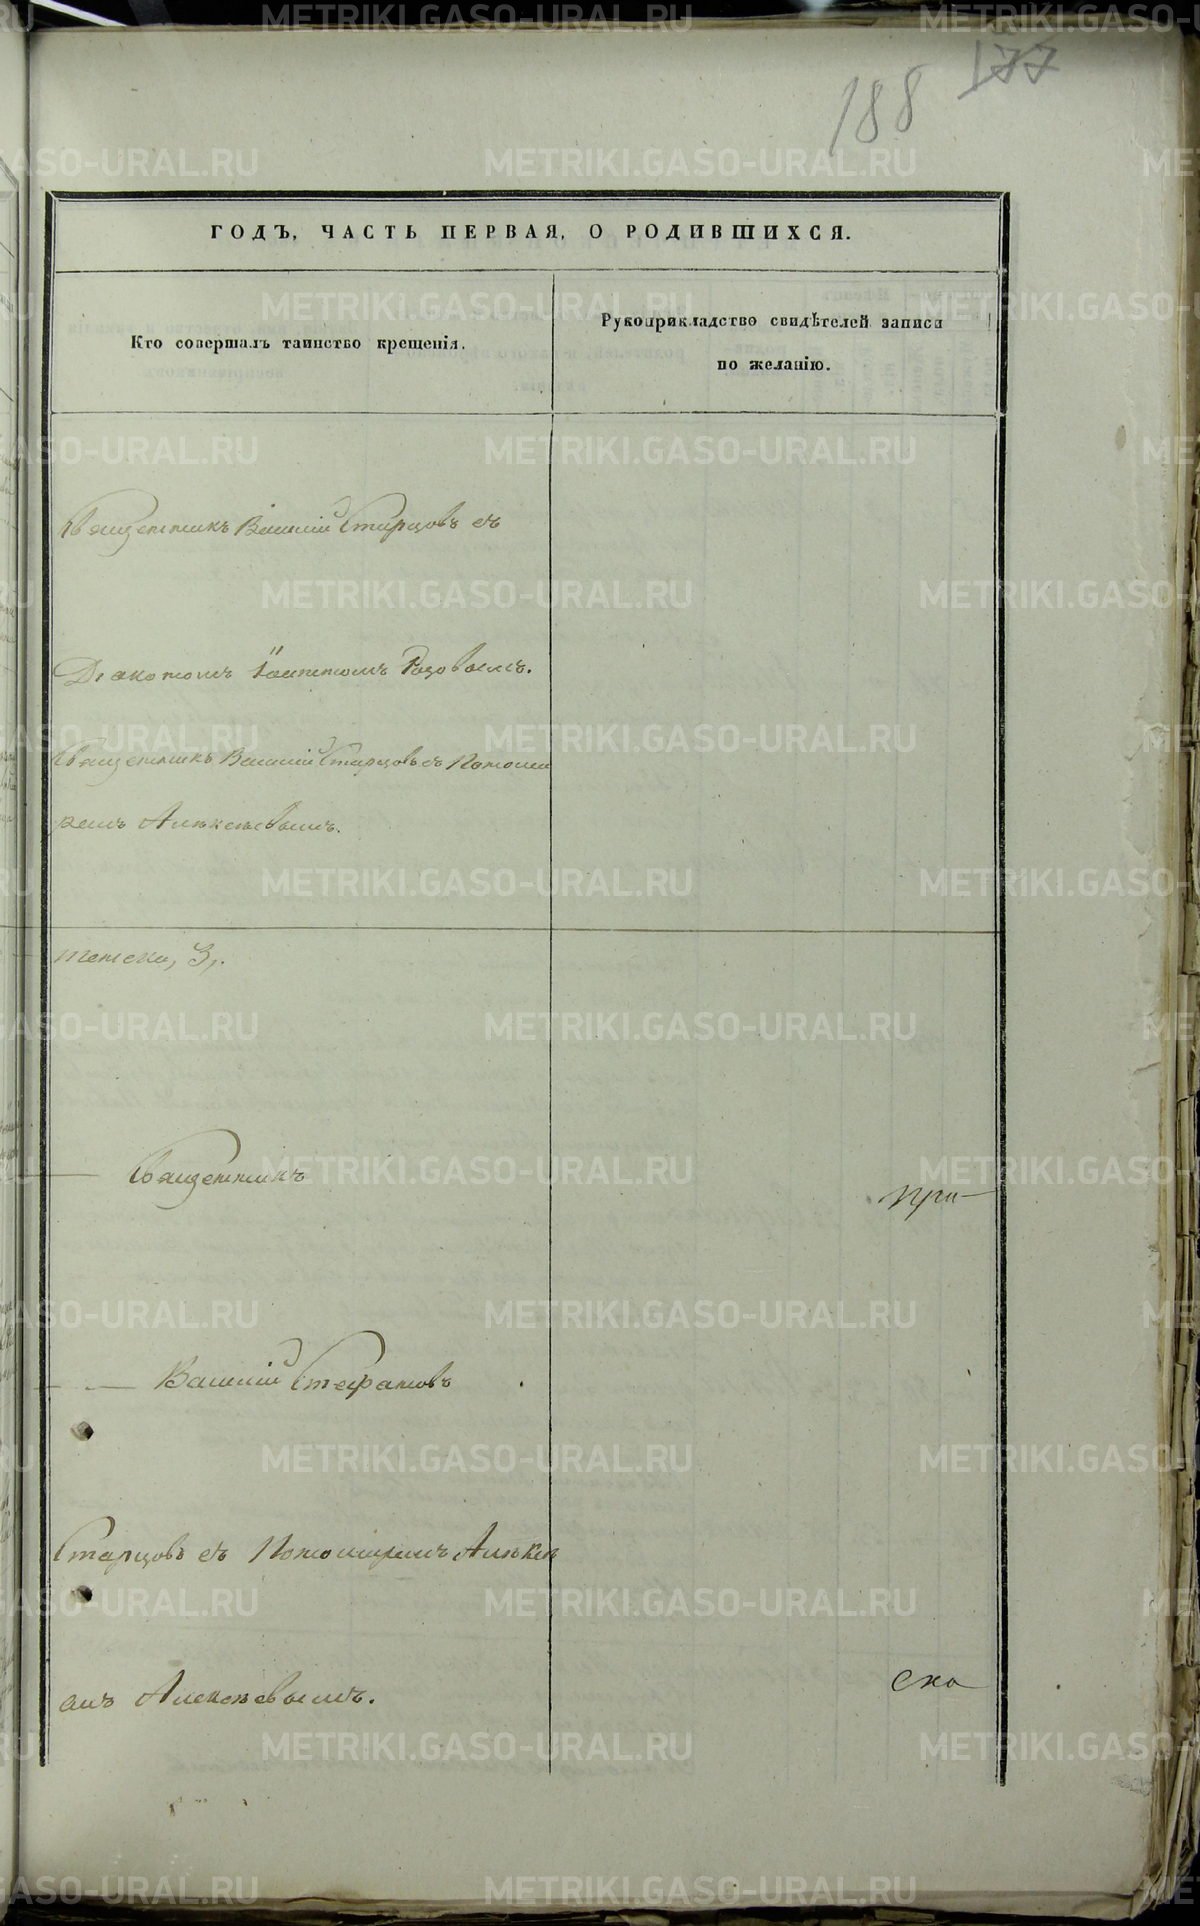 188 177
ГОДЪ, ЧАСТЬ ПЕРВАЯ, О РОДИВШИХСЯ.
Кто совершалъ таинство крещенія.
Рукоприкладство свидѣтелей записи
по желанію.
Священникъ Василій Старцовъ съ
Діакономъ Іоанномъ
Священникъ Василій Старцовъ съ Пономо
ремъ Алексѣевымъ.
3,.
Священникъ
При
Василій Стефановъ
Старцовъ съ Пономаремъ Алѣксѣ
Алексѣевымъ.
ско
METRIKI.GASO-URAL.RU